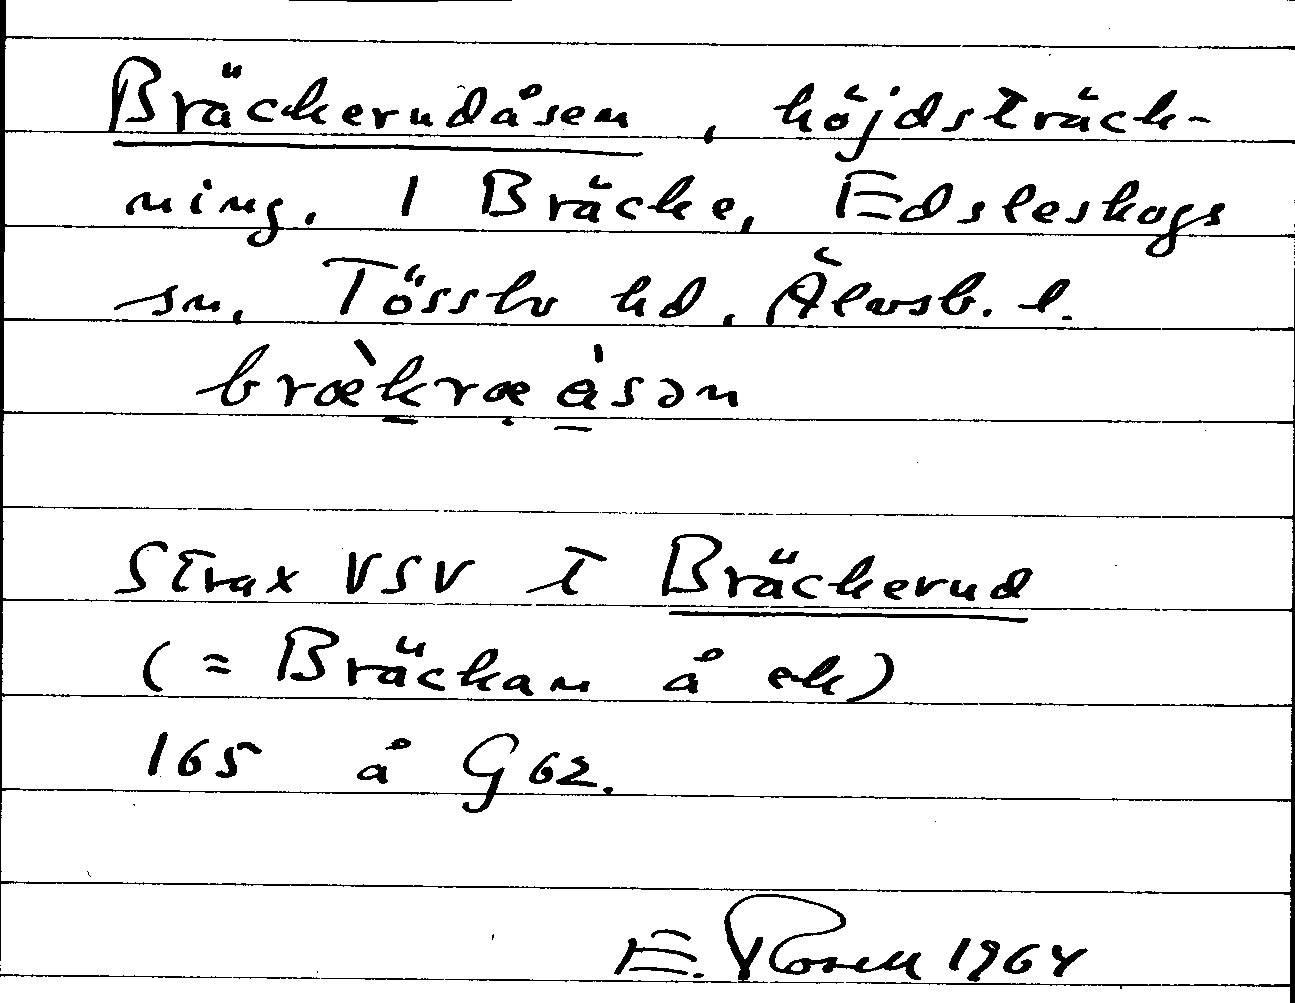 Bräckerudåsen, höjdsträck-
ning. I Bräcke, Edsleskogs
sn, Tössbo hd, Älvsb. l.
bræ̀kræåsən
Strax VSV t Bräckerud
(= Bräckan å ek)
165 å G 62.
E. Rosell 1964